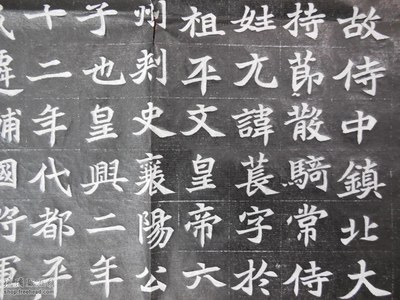 故侍中鎮北大
持節散騎常侍
姓元諱萇字於
祖平文皇帝六
州刺史襄陽公
子也皇興二年
十二年代都平
遷輔國將軍